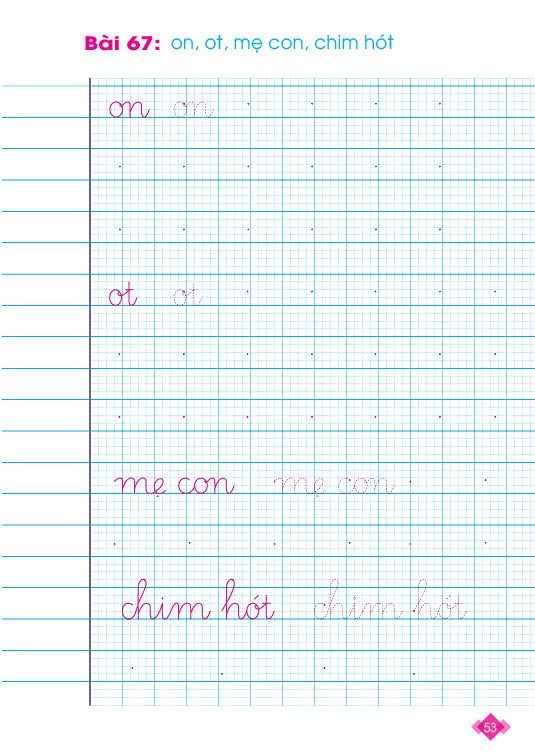 Bài 67: on, ot, mẹ con, chim hót
on on
ot ot
mẹ con mẹ con
chim hót chim hót
53